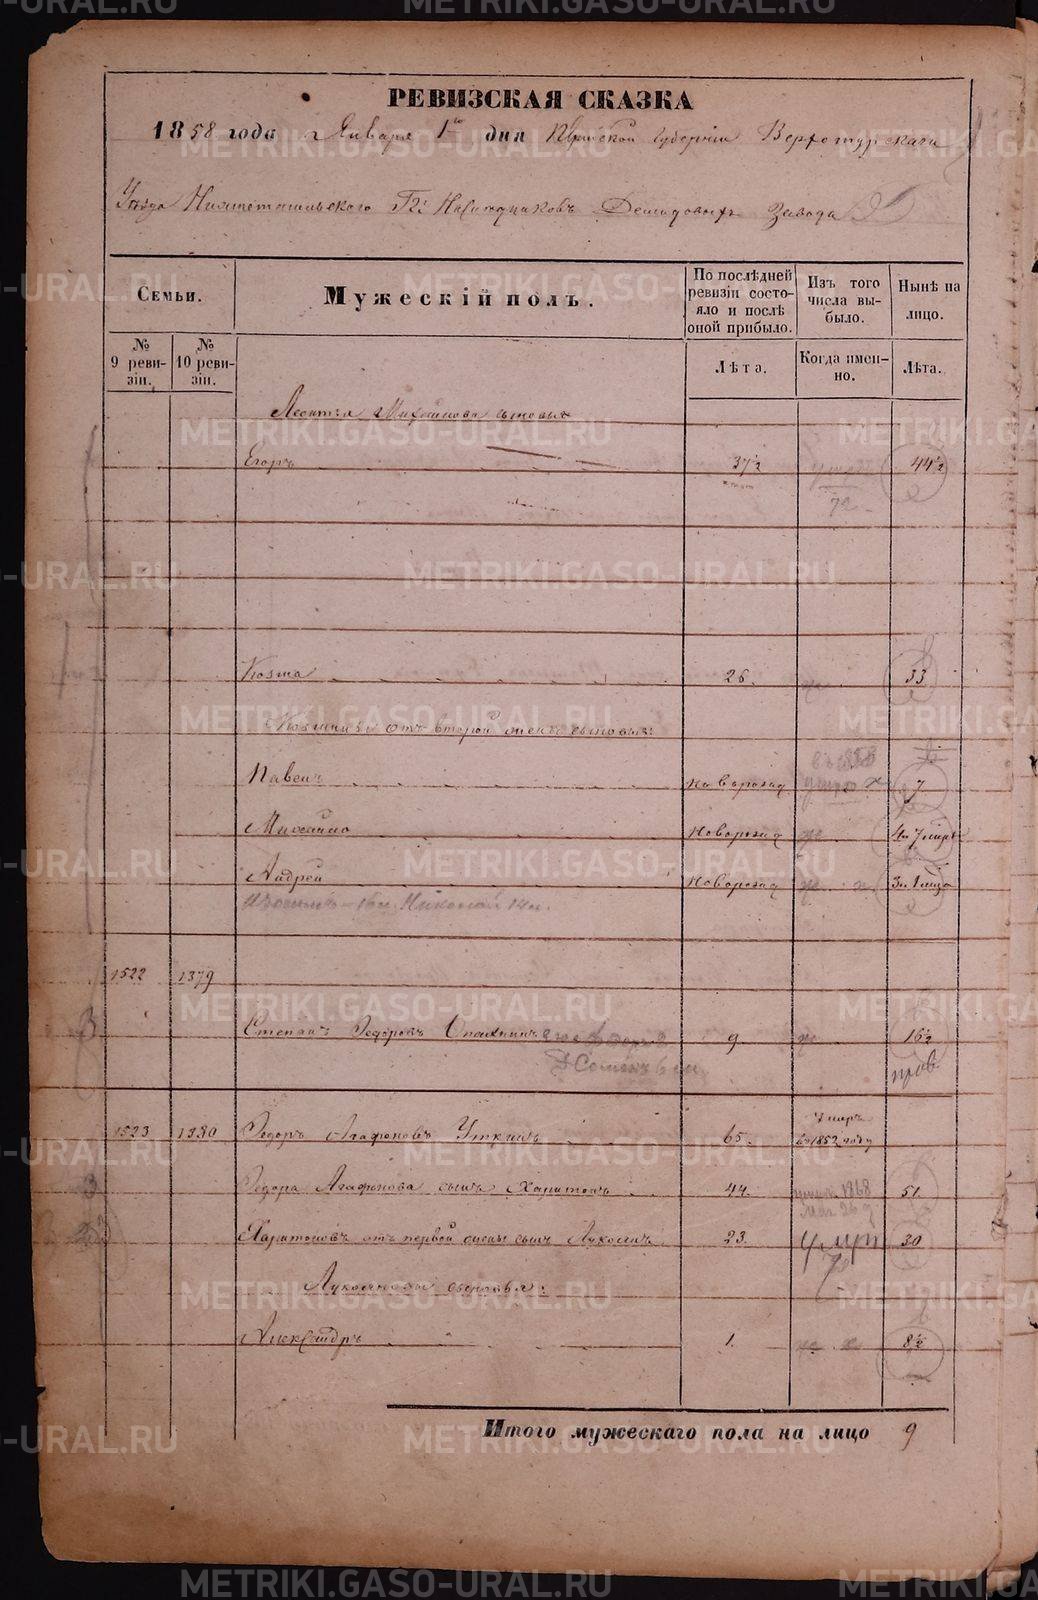 РЕВИЗСКАЯ СКАЗКА
1858 года Января 1го дня Пермской Губерніи Верхотурскаго
Уѣзда Нижнетагильского Гг Наслѣдниковъ Демидовыхъ Завода
Семьи.
Мужескій полъ.
По послѣдней ревизіи состояло и послѣ оной прибыло.
Изъ того числа выбыло.
Нынѣ на лицо.
№ 9 ревизіи.
№ 10 ревизіи.
Лѣта.
Когда именно.
Лѣта.
Леонтья Михайлова сыновья
Егоръ 37½ 44½
72
Козма 26. 33
Козмины отъ второй жены сыновья:
Павелъ новорожд 7
Михайло новорожд 4 7 мцъ
Андрей новорожд 3 1 мцъ
Николай 14
1522 1379
Степанъ Федоровъ 9 16½
1523 1380 Федоръ Агафоновъ Уткинъ 65. Умеръ въ 1852 году
Федора Агафонова сынъ Харитонъ 44. 1868 51
Харитоновъ отъ первой жены сынъ Лукоянъ 23. умер 30
Лукояновы сыновья:
Александръ 1. 8½
Итого мужескаго пола на лицо 9
METRIKI.GASO-URAL.RU